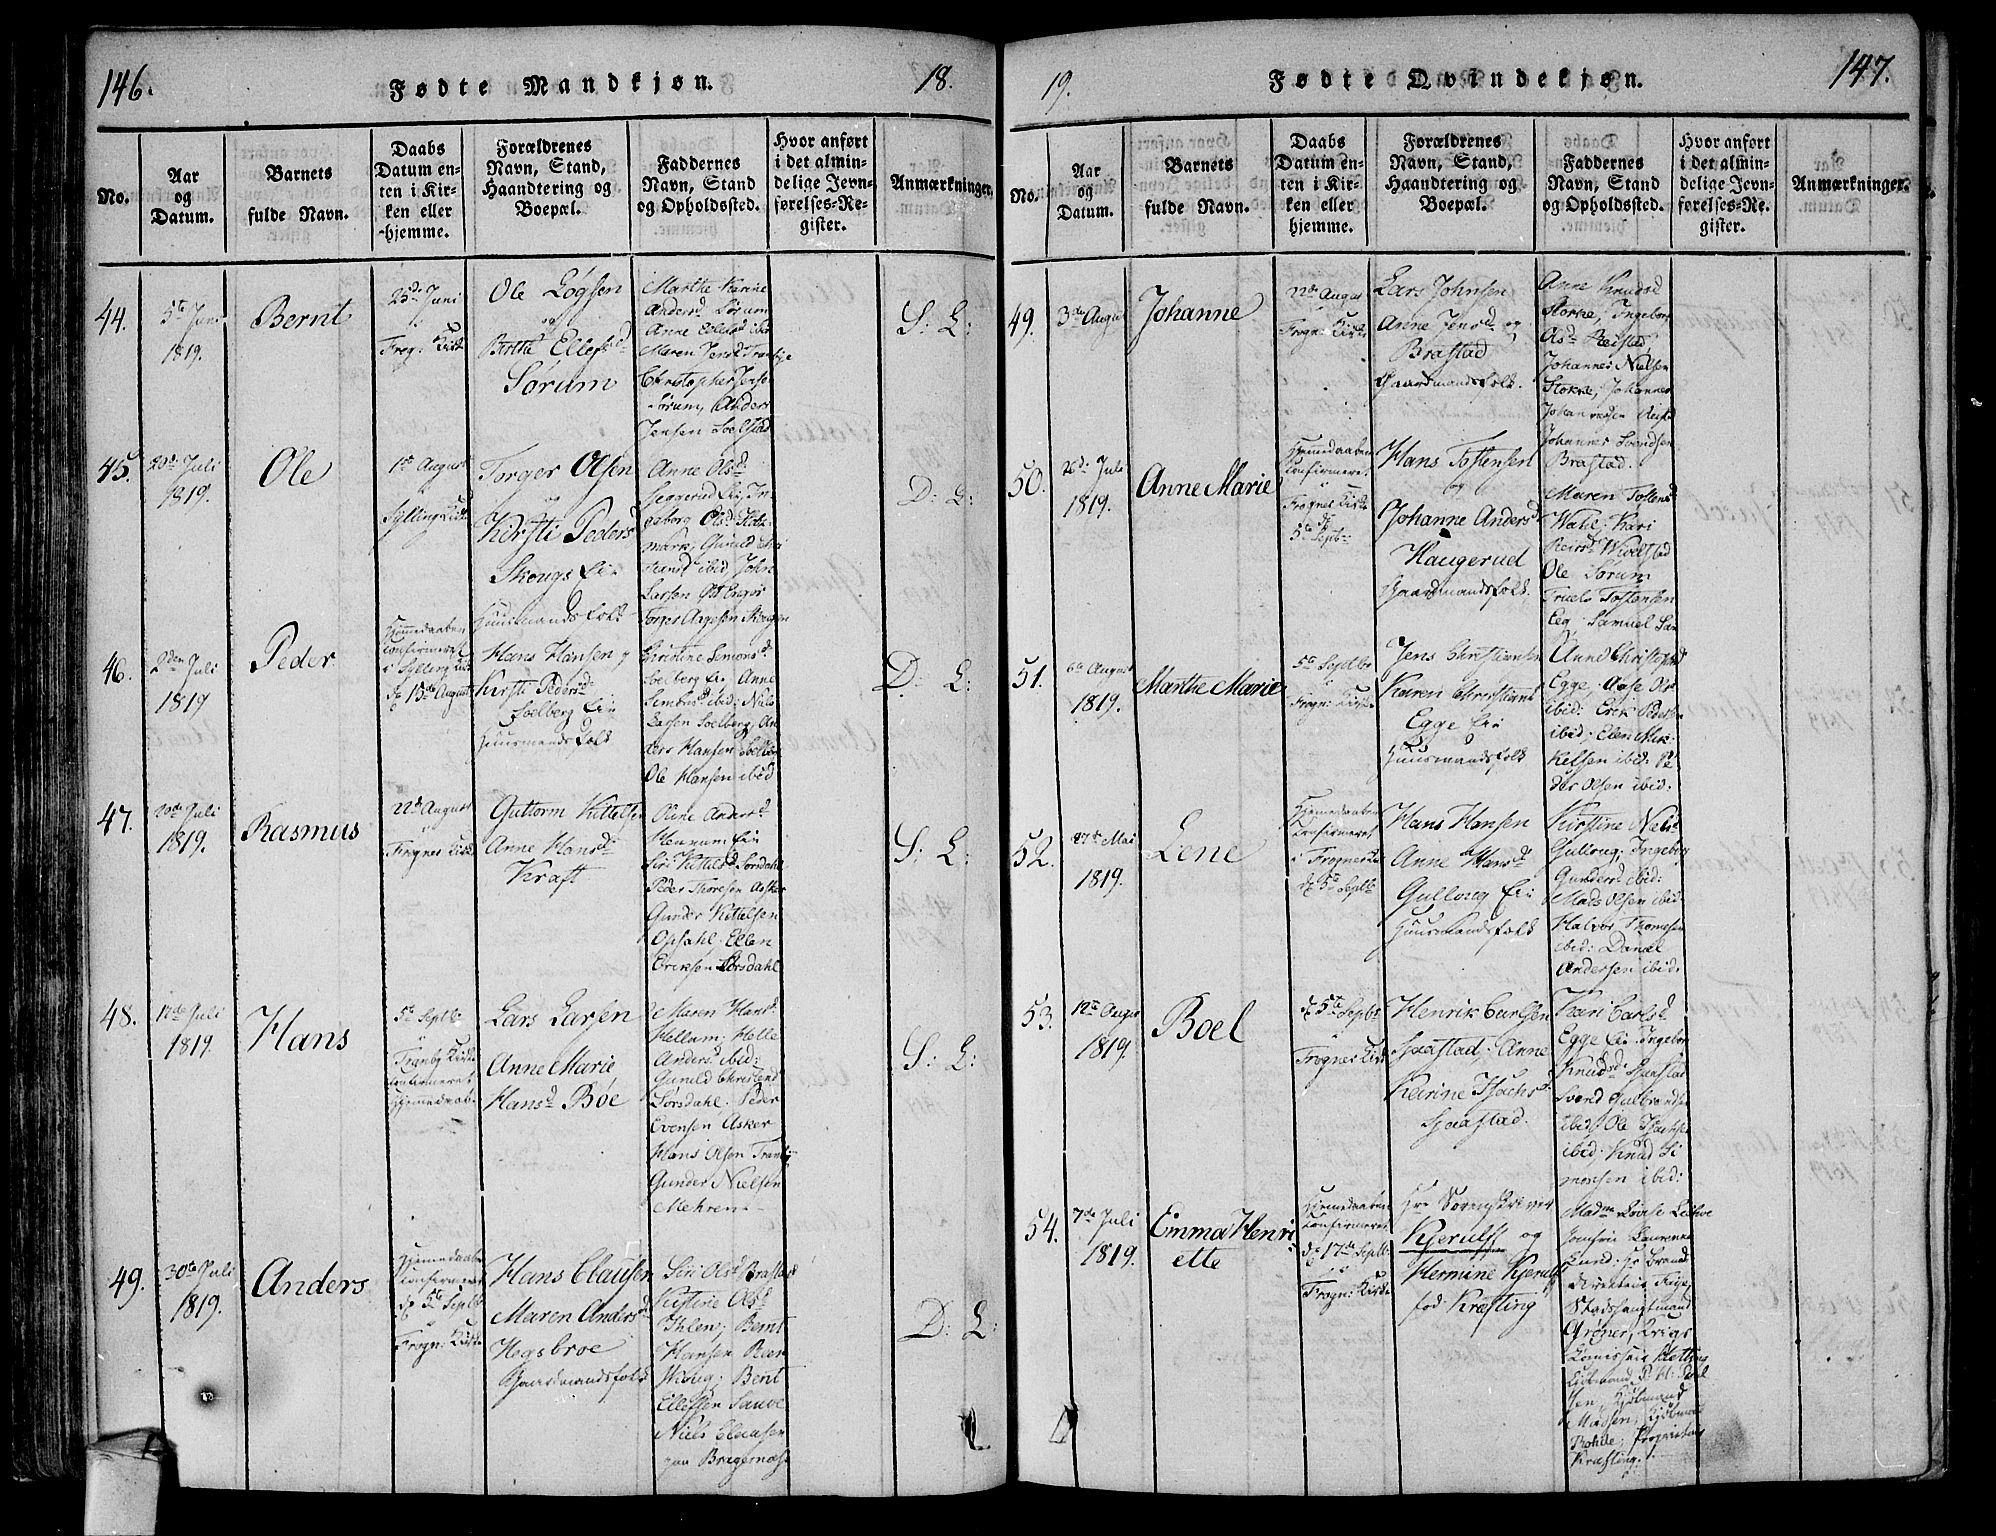 146.
Fødte Mandkjøn.
18.
No.
Aar
og
Datum.
Barnets
fulde Navn.
Daabs
Datum en-
ten i Kir-
ken eller
hjemme.
Forældrenes
Navn, Stand,
Haandtering og
Boepæl.
Faddernes
Navn, Stand
og Opholdssted.
Hvor anført
i det almin-
delige Jevn-
førelses-Re-
gister.
Anmærkninger.
44.
5te Juni
1819.
Bernt
25de Juni
Frog: Kirk
Ole
og
Berthe Ellefsd
Sørum
Marthe Karine
Andersd Sørum
Anne Ellefsd ibid
Maren Jensd Tranbye
Christopher Jense
Sørum, Anders
Jensen Solstad
S: L:
45.
20de Juli
1819.
Ole
1te August
Sylling Kirke
Torger Olsen
og
Kirsti Peders
Skougs Eie
Huusmandsfolk
Anne Olsd
Seggerud Eie, In
geborg Olsd
mark, Gunild
ibid John
Larsen
Torger Aagesen Skougen
D: L:
46.
2den Juli
1819
Peder
Hjemmedaaben
Confirmeret
i Sylling Kirke
d. 15de August
Hans Hansen og
Kirsti Pedersd
Soelberg Eie
Huusmandsfolk
Christine Simonsd
Soelberg Eie Anne
ibid: Niels
Larsen Soelberg, An
ders Hansen Soelberg
Ole Hansen ibid
D: L:
47.
20de Juli
1819.
Rasmus
22de August
Frognes Kirke
Guttorm Kittelsen
Anne Hansd
Kraft
Anne Andersd
Hennum Eie
Siri Kittelsd Lorsdahl
Peder Thoresen Asker
Gunder Kittelsen
Opsahl. Ellen
Eriksen Lorsdahl
S: L:
48.
12de Juli
1819.
Hans
5te Septbr
Tranby Kirke
Confirmeret
Hjemmedaab
Lars Larsen
Anne Marie
Hansd Bøe
Maren Hansd
Hellum; Helle
Andersd ibid:
Gunild Christensd
Lorsdahl. Peder
Evensen Asker
Hans Olsen Tranby
Gunder Nielsen
Mehren
S: L:
49.
30te Juli
1819.
Anders
Hjemmedaaben
Confirmeret
d. 5te Septbr
Frogn: Kirke
Hans Clausen
Maren Andersd
Hegsbroe
Gaardmandsfolk
Siri Olsd Brastad
Kistine Olsd
Ihlen; Bernt
Hansen
Wioug; Bent
Ellefsen Sauve
Niels Clausen
paa Bragernæs
D: L:
19.
Fødte Qvindekjøn.
147.
No.
Aar
og
Datum.
Barnets
fulde Navn.
Daabs
Datum en-
ten i Kir-
ken eller
hjemme.
Forældrenes
Navn, Stand,
Haandtering og
Boepæl.
Faddernes
Navn, Stand
og Opholdssted.
Hvor anført
i det almin-
delige Jevn-
førelses-Re-
gister.
Anmærkninger.
49.
3de August
Johanne
22de August
Frogne Kirke
Lars Johnsen
Anne Jensd og
Brastad
Gaardmandsfolk.
Anne Knudsd
Storke, Ingeborg
Olsd Reistad,
Johannes Nielsen
Stokke, Johannes
Johannesen Reistad
Johannes Svendsen
Brastad.
50.
26de Juli
1819.
Anne Marie
Hjemmedaaben
Confirmeret
i
Frognes Kirke
d:
5te Septbr
Hans Tostensen
og
Johanne Andersd
Haugerud
Gaardmandsfolk.
Maren Tostensd
Wahl. Kari
Reersd Wivelstad
Ole Sørum
Truels Tostensen
Eeg. Samuel
51.
6te August
1819.
Marthe Marie
5te Septbr
Frogn: Kirke
Jens Christiansen
Karen Christiansd
Egge Eie
Huusmandsfolk
Anne Christophersd
Egge, Aase Ols
ibid: Erik Pedersen
ibid; Ellen Mik
kelsen ibid: Pe
der Olsen ibid:
52.
27de Mai
1819.
Lene
Hjemmedaaben
Confirmeret
i Frognes K
d. 5te Septbr
Hans Hansen
Anne Hansd
Gulloug Eie
Huusmandsfolk
Kirstine Nielsd
Gulloug; Ingeborg
Gundersd ibid:
Mads Olsen ibid:
Halvor Thomesen
ibid: Daniel
Andersen ibid:
53.
12te August
1819.
Boel
d. 5te Septbr
Frognes Kirke
Henrik Carlsen
Spaastad; Anne
Karine Isachsd
Spaastad.
Kari Carlsd
Egge Eie Ingeborg
Knudsd: Spaastad
Svend Gulbrandsen
ibid, Ole Isachsen
ibid, Knud Si
monsen ibid:
54.
7de Juli
1819.
Emma Henri
ette
Hjemmedaaben
Confirmeret
d. 17de Septbr
i
Frogn: Kirke
Hr Sorenskriver
Kjerulf og
Hermine Kjerulf
fød: Kræfting
Madm Lovise
Jomfru Laurenne
Lund: Hr
Stadshauptmand
Grøner, Krigs
Comissair
sen, Kjøbmand
Massen, Kjøbmand
Rohde, Proprietær
Kræfting.